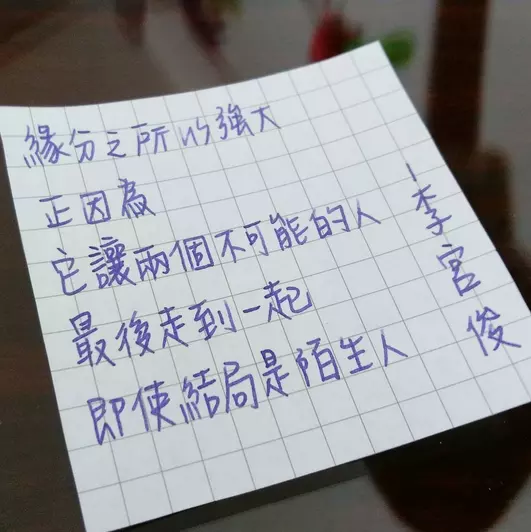 緣分之所以強大
正因為
它讓兩個不可能的人
最後走到一起
即使結局是陌生人
-李宮俊